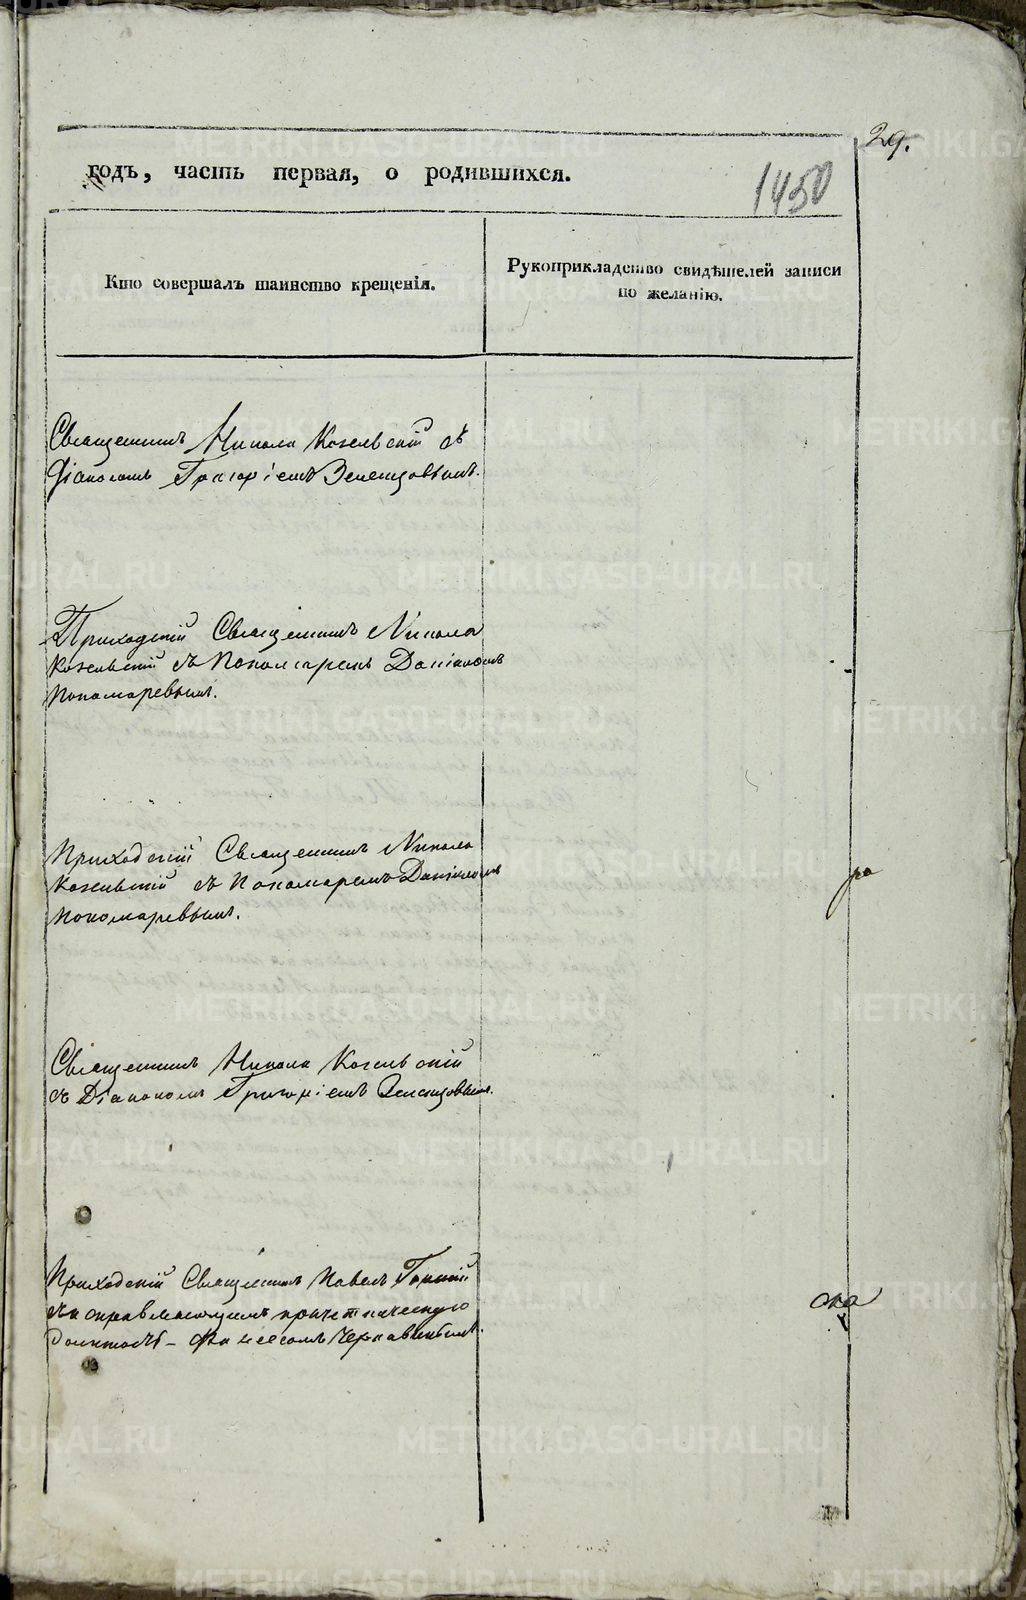 29.
годъ, часть первая, о родившихся.
1450
Кто совершалъ таинство крещенія.
Рукоприкладство свидѣтелей записи
по желанію.
Священникъ Никола Козельскій съ
Діакономъ Григоріемъ Зеленцовымъ.
Приходскій Священникъ Никола
Козельскій съ Пономаремъ Даніиломъ
Пономаревымъ.
Приходскій Священникъ Никола
Козельскій съ Пономаремъ Даніиломъ
Пономаревымъ.
Священникъ Никола Козельскій
съ Діакономъ Григоріемъ Зеленцовымъ.
Приходскій Священникъ Павелъ
съ исправляющимъ причетническую
должность Чернавинымъ.
METRIKI.GASO-URAL.RU